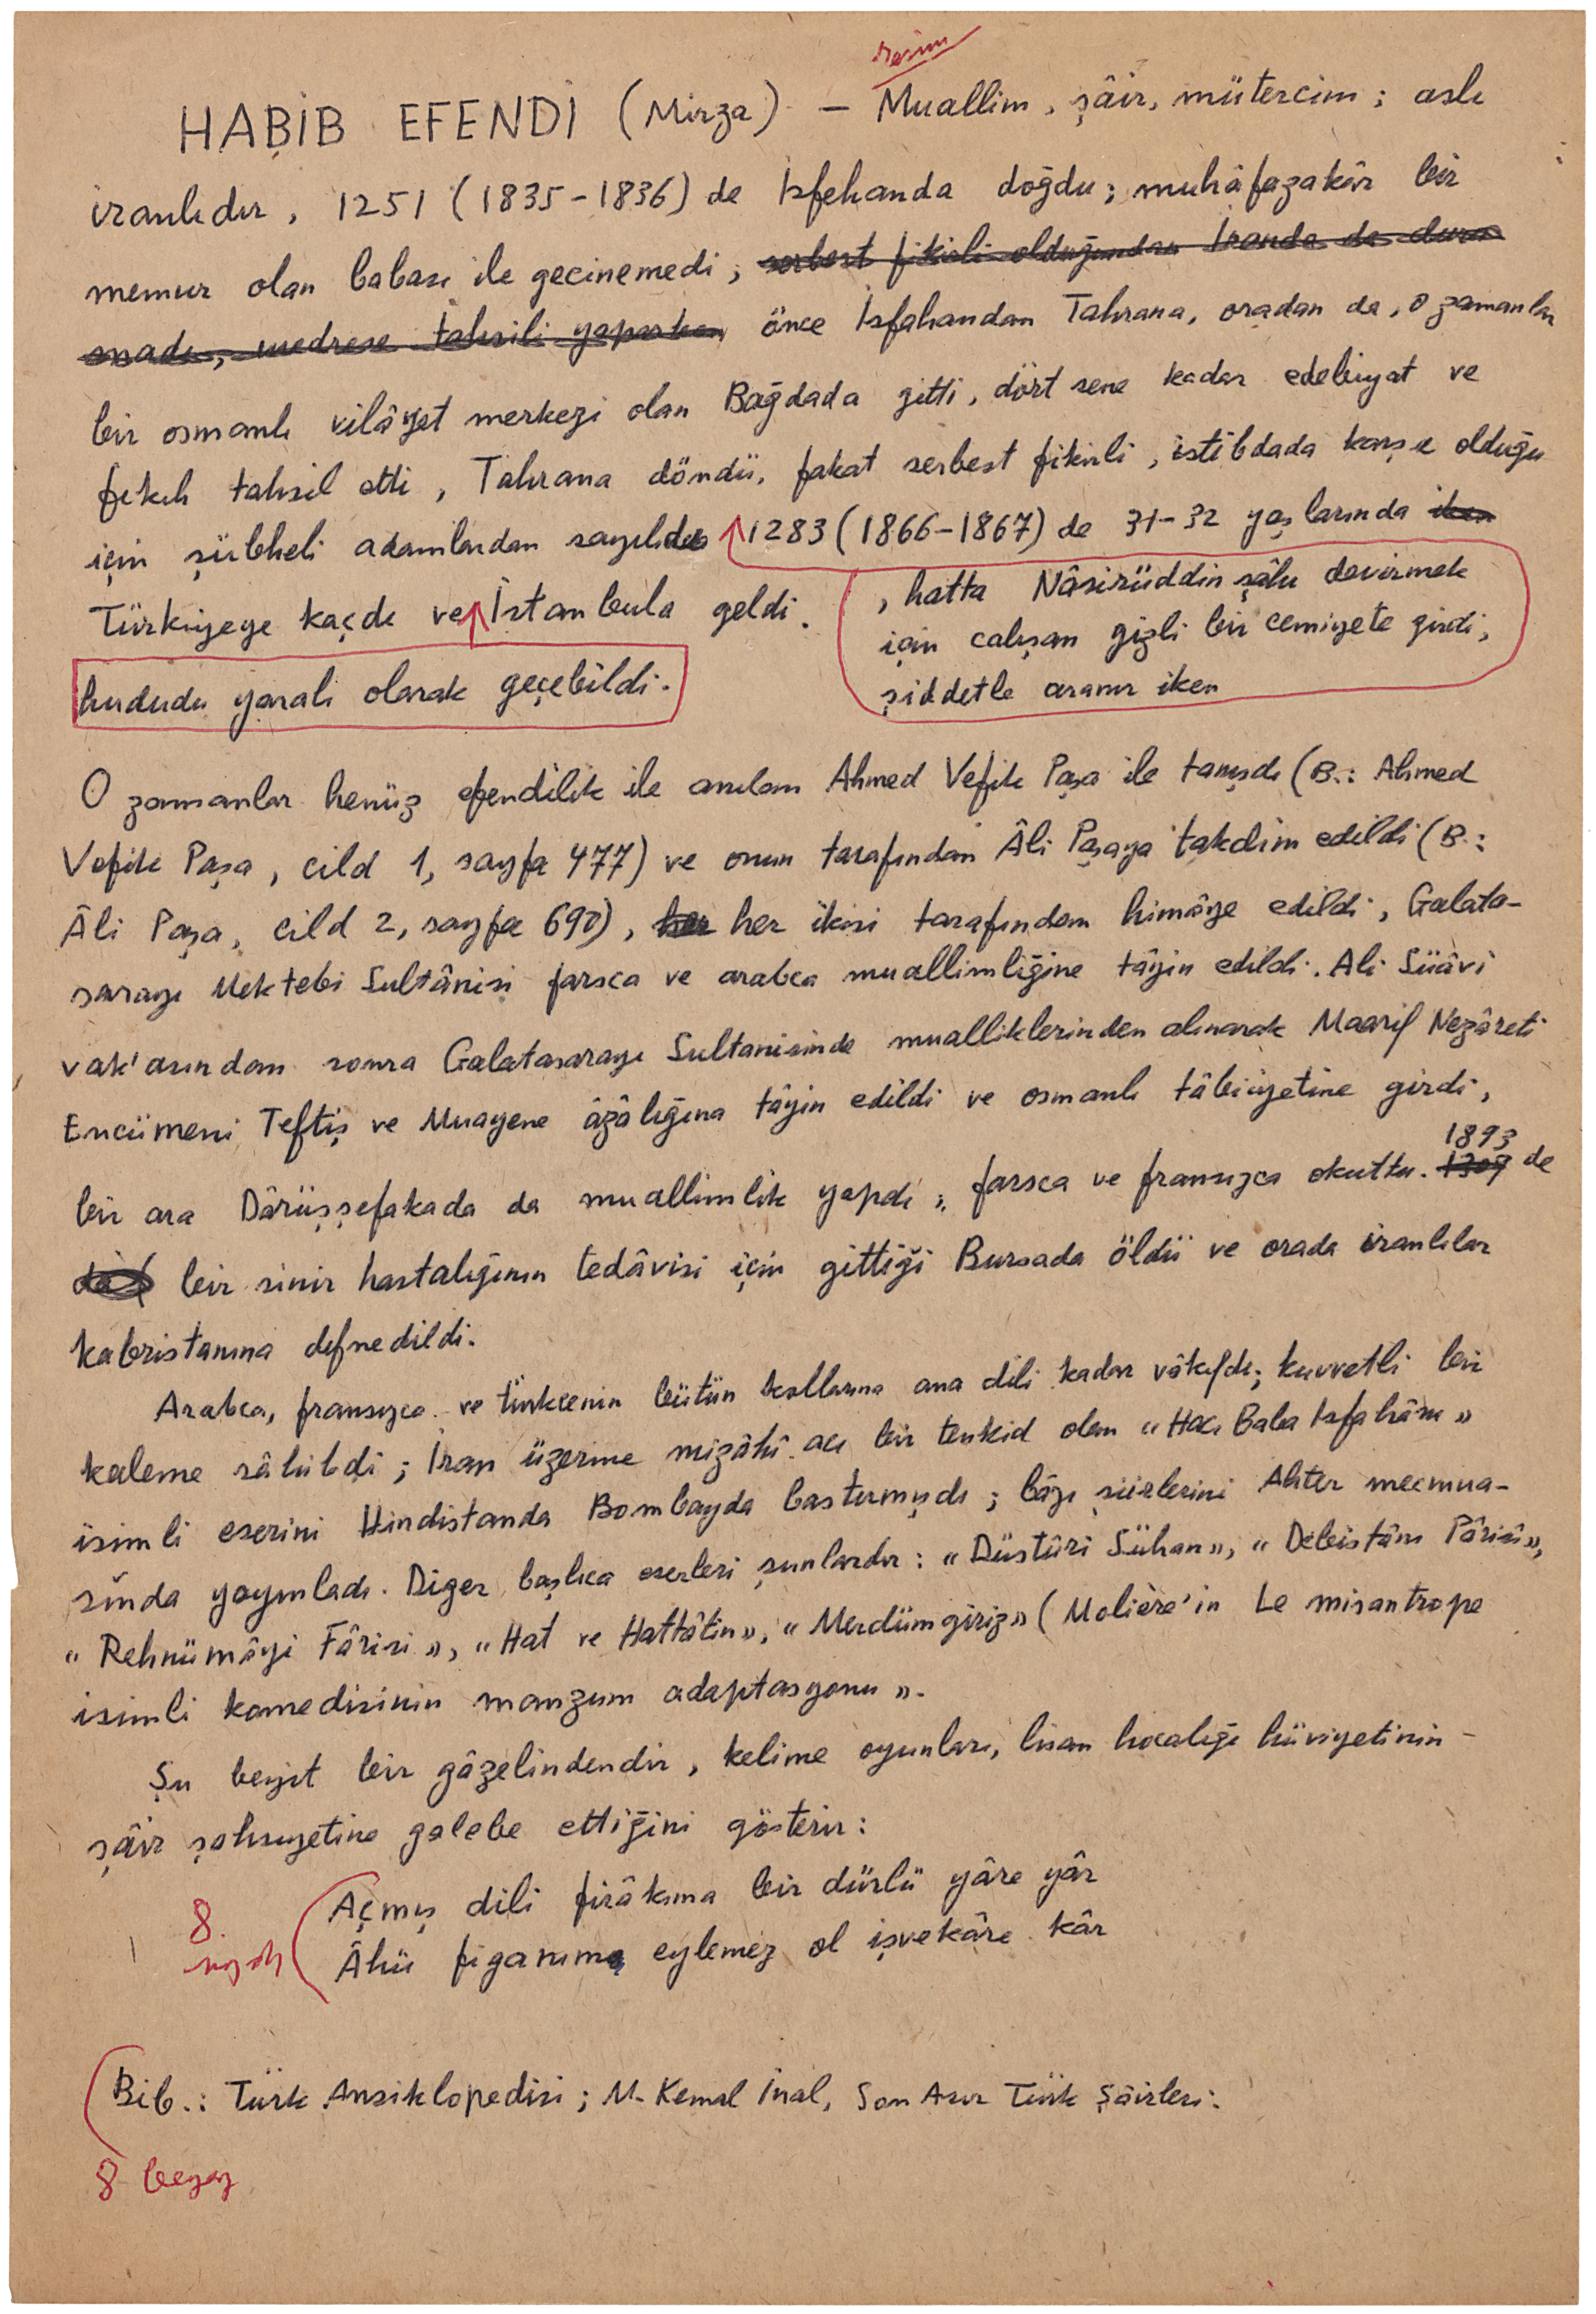 resim
HABİB EFENDİ (Mirza) — Muallim, şâir, mütercim; aslı
iranlıdır, 1251 (1835-1836) de İsfehanda doğdu; muhâfazakâr bir
memur olan babası ile gecinemedi; serbest fikirli olduğundan İranda da dura
madı, medrese tahsili yaparken önce İsfahandan Tahrana, oradan da, o zamanlar
bir osmanlı vilâyet merkezi olan Bağdada gitti, dört sene kadar edebiyat ve
fıkıh tahsil etti, Tahrana döndü, fakat serbest fikirli, istibdada karşı olduğu
için şübheli adamlardan sayıldı 1283 (1866-1867) de 31-32 yaşlarında iken
, hatta Nâsirüddin şâhı devirmek
için calışan gizli bir cemiyete girdi,
şiddetle aranır iken
Türkiyeye kaçdı ve İstanbula geldi.
hududu yaralı olarak geçebildi.
O zamanlar henüz efendilik ile anılan Ahmed Vefik Paşa ile tanışdı (B.: Ahmed
Vefik Paşa, cild 1, sayfa 477) ve onun tarafından Âli Paşaya takdim edildi (B.:
Âli Paşa, cild 2, sayfa 690), her her ikisi tarafından himâye edildi, Galata-
sarayı Mektebi Sultânisi farsca ve arabca muallimliğine tâyin edildi. Ali Süâvi
vak'asından sonra Galatasarayı Sultanisinde mualliklerinden alınarak Maarif Nezâreti
Encümeni Teftiş ve Muayene âzâlığına tâyin edildi ve osmanlı tâbiiyetine girdi,
bir ara Dârüşşefakada da muallimlik yapdı, farsca ve fransızca okuttu. 1309 1893 de
bir sinir hastalığının tedâvisi için gittiği Bursada öldü ve orada iranlılar
kabristanına defnedildi.
Arabca, fransızca ve türkcenin bütün kollarına ana dili kadar vâkıfdı; kuvvetli bir
kaleme sâhibdi; İran üzerine mizâhî acı bir tenkid olan «Hacı Baba Isfahâni»
isimli eserini Hindistanda Bombayda bastırmışdı; bâzı şiirlerini Ahter mecmua-
sında yayınladı. Diger başlıca eserleri şunlardır: «Düstûri Sühan», «Debistânı Pârisî»,
«Rehnümâyi Fârisi», «Hat ve Hattâtin», «Merdümgiriz» (Molière'in Le misantrope
isimli komedisinin manzum adaptasyonu».
Şu beyit bir gâzelindendir, kelime oyunları, lisan hocalığı hüviyetinin
şâir şahsıyetine galebe ettiğini gösterir:
Açmış dili firâkına bir dürlü yâre yâr
Âhü figanıma eylemez ol işvekâre kâr
8
siyah
Bib.: Türk Ansiklopedisi; M. Kemal İnal, Son Asır Türk Şâirleri.
8 beyaz